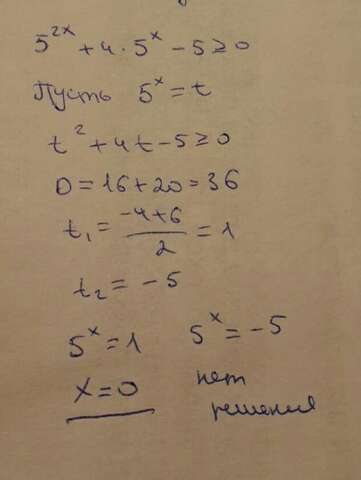 5^{2x} + 4 · 5^x - 5 ≥ 0
Пусть 5^x = t
t^2 + 4t - 5 ≥ 0
D = 16 + 20 = 36
t_1 = \frac{-4+6}{2} = 1
t_2 = -5
5^x = 1 5^x = -5
x = 0 нет
решения